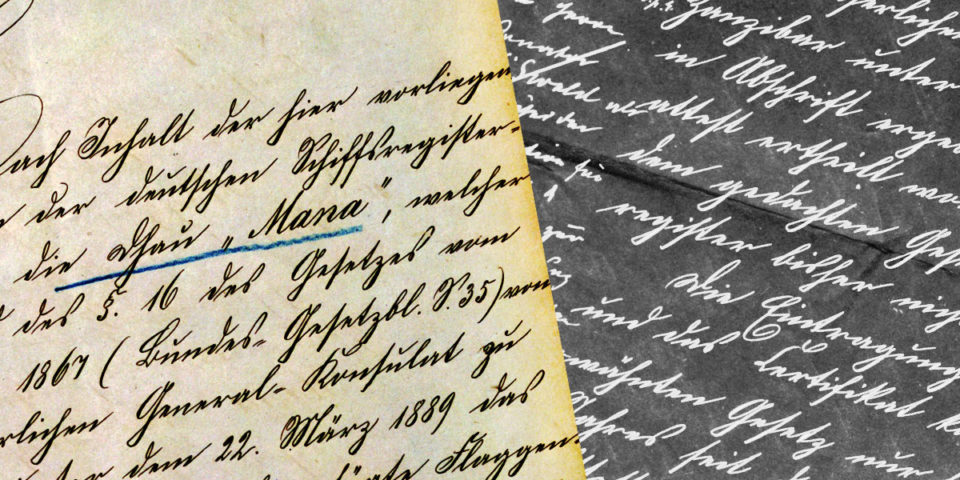 ach Inhalt der hier vorliegen
der deutschen Schiffsregister-
die Dhau „Mana“, welcher
des §. 16 des Gesetzes vom
1867 (Bundes-Gesetzbl. S. 35) von
rlichen General-Konsulat zu
dem 22. März 1889 das
Flaggen
Zanzibar unter
in Abschrift erge
attest ertheilt wor
dem gedachten Ges
register bisher nich
Die Eintragung
und das Certifikat k
wähnten Gesetz nur
Jahres seit